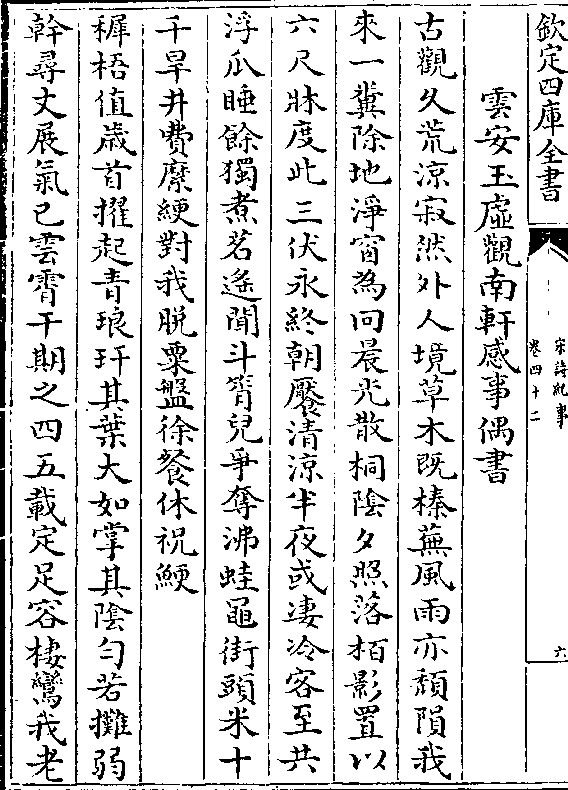 欽定四庫全書
宋詩紀事
卷四十二
六
雲安玉虛觀南軒感事偶書
古觀久荒涼寂然外人境草木既榛蕪風雨亦頽隕我
來一糞除地淨窗為冏晨光散桐陰夕照落栢影置以
六尺牀度此三伏永終朝饜清涼半夜或凄冷客至共
浮瓜睡餘獨煮茗遙聞斗筲兒爭奪沸蛙黽街頭米十
千旱井費縻綆對我脫粟盤徐餐休祝鯁
穉梧值歲首擢起青琅玕其葉大如掌其陰勻若攤弱
幹尋丈展氣已雲霄干期之四五載定足容棲鸞我老